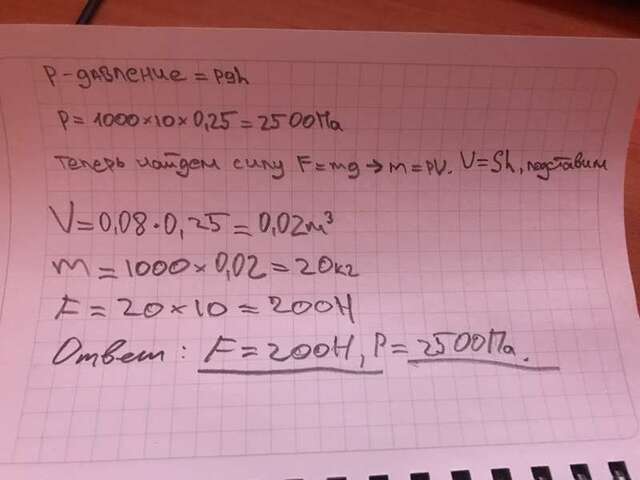 P-давление = ρgh
P=1000×10×0,25=2500Па
теперь найдем силу F=mg→m=ρV. V=Sh, подставим
V=0,08·0,25=0,02м³
m=1000×0,02=20кг
F=20×10=200Н
Ответ: F=200Н, P=2500Па.